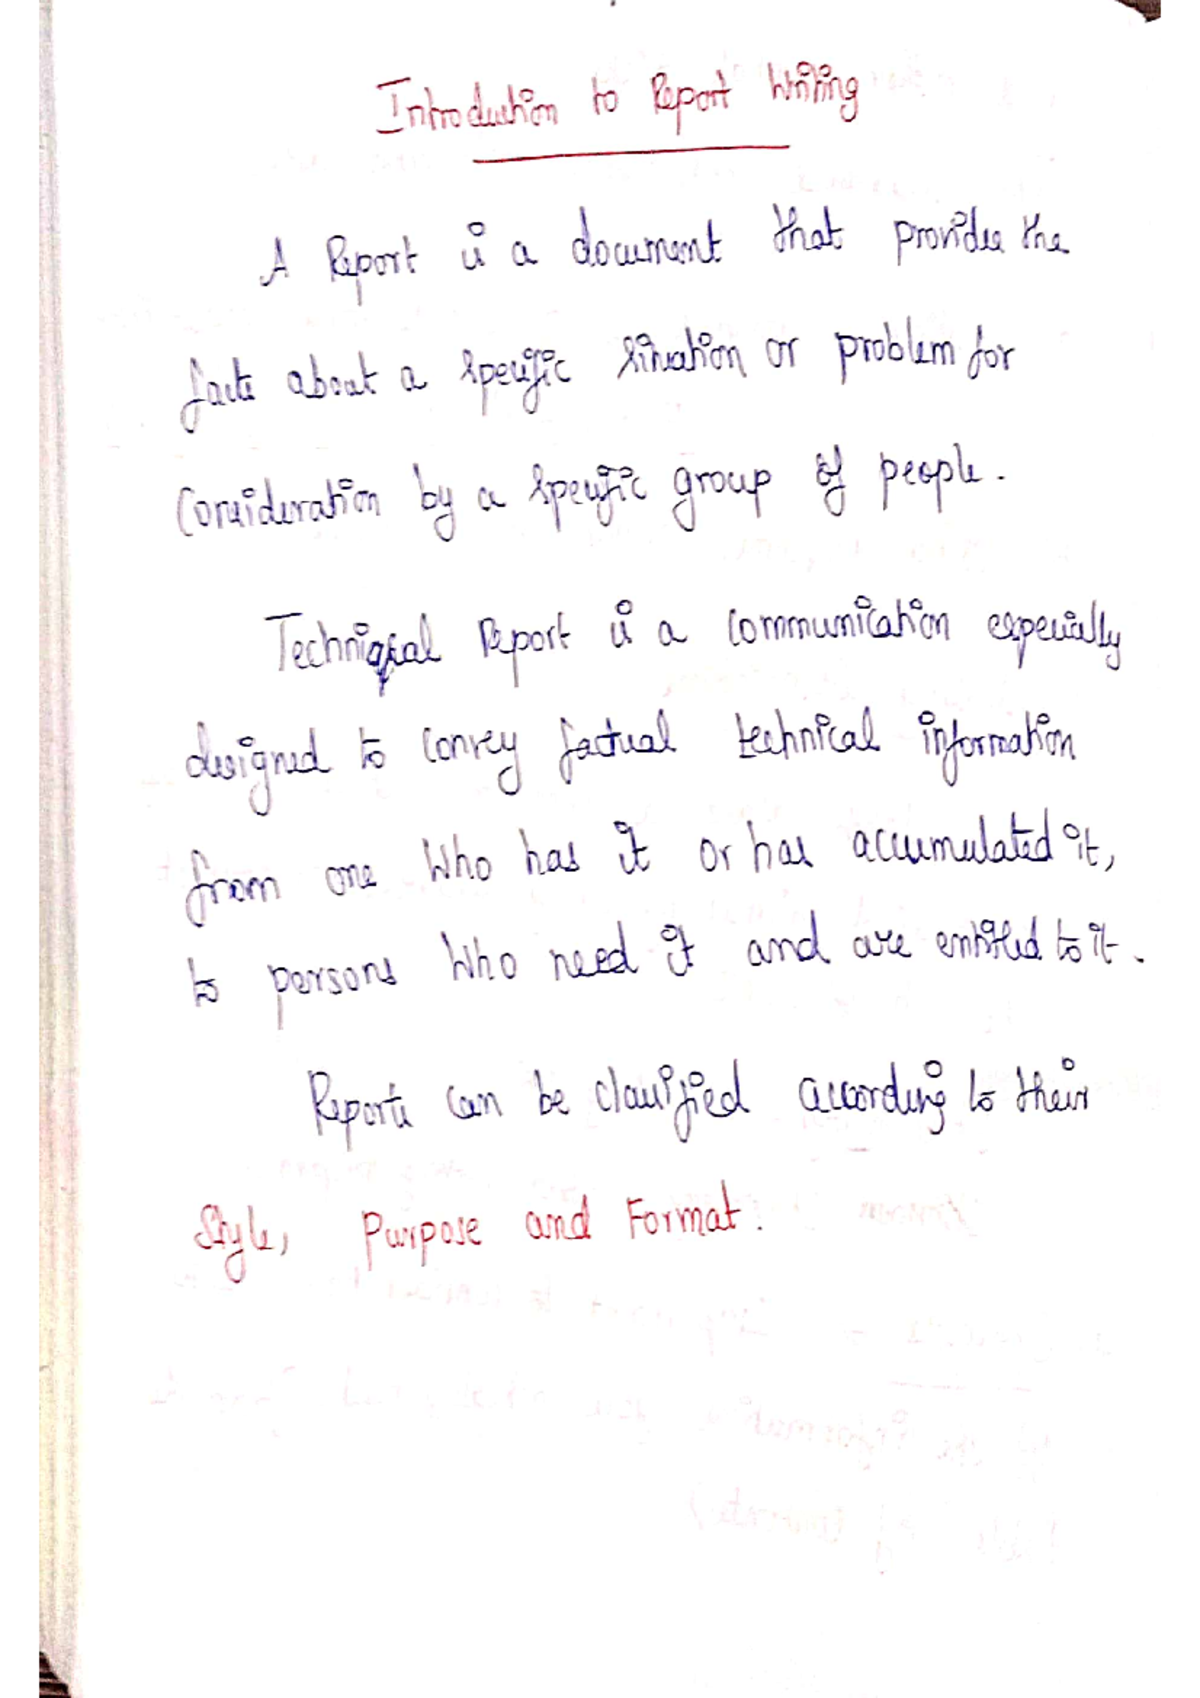 Introduction to Report Writing
A Report is a document that provides the
facts about a specific situation or problem for
Consideration by a specific group of people.
Technical Report is a communication especially
designed to convey factual technical information
from one Who has it or has accumulated it,
to persons Who need it and are entitled to it.
Reports can be classified according to their
Style, Purpose and Format.